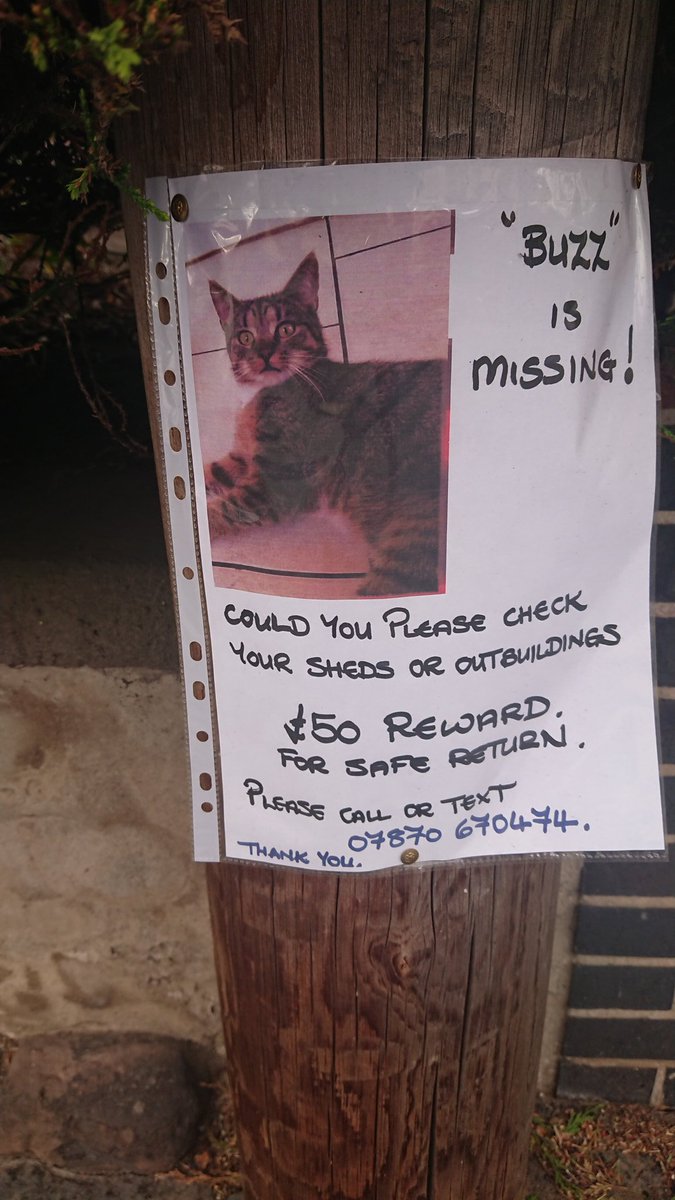 "BUZZ"
IS
MISSING!
COULD YOU PLEASE CHECK
YOUR SHEDS OR OUTBUILDINGS
£50 REWARD.
FOR SAFE RETURN.
PLEASE CALL OR TEXT
07870 670474.
THANK YOU.